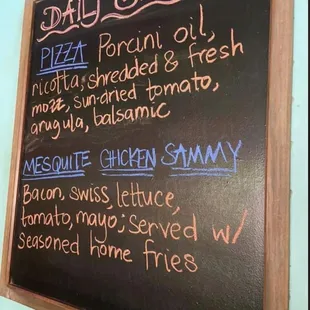 DAILY
PIZZA Porcini oil,
ricotta, shredded & fresh
mozz, sun-dried tomato,
arugula, balsamic
MESQUITE CHICKEN SAMMY
Bacon, swiss, lettuce,
tomato, mayo; served w/
seasoned home fries